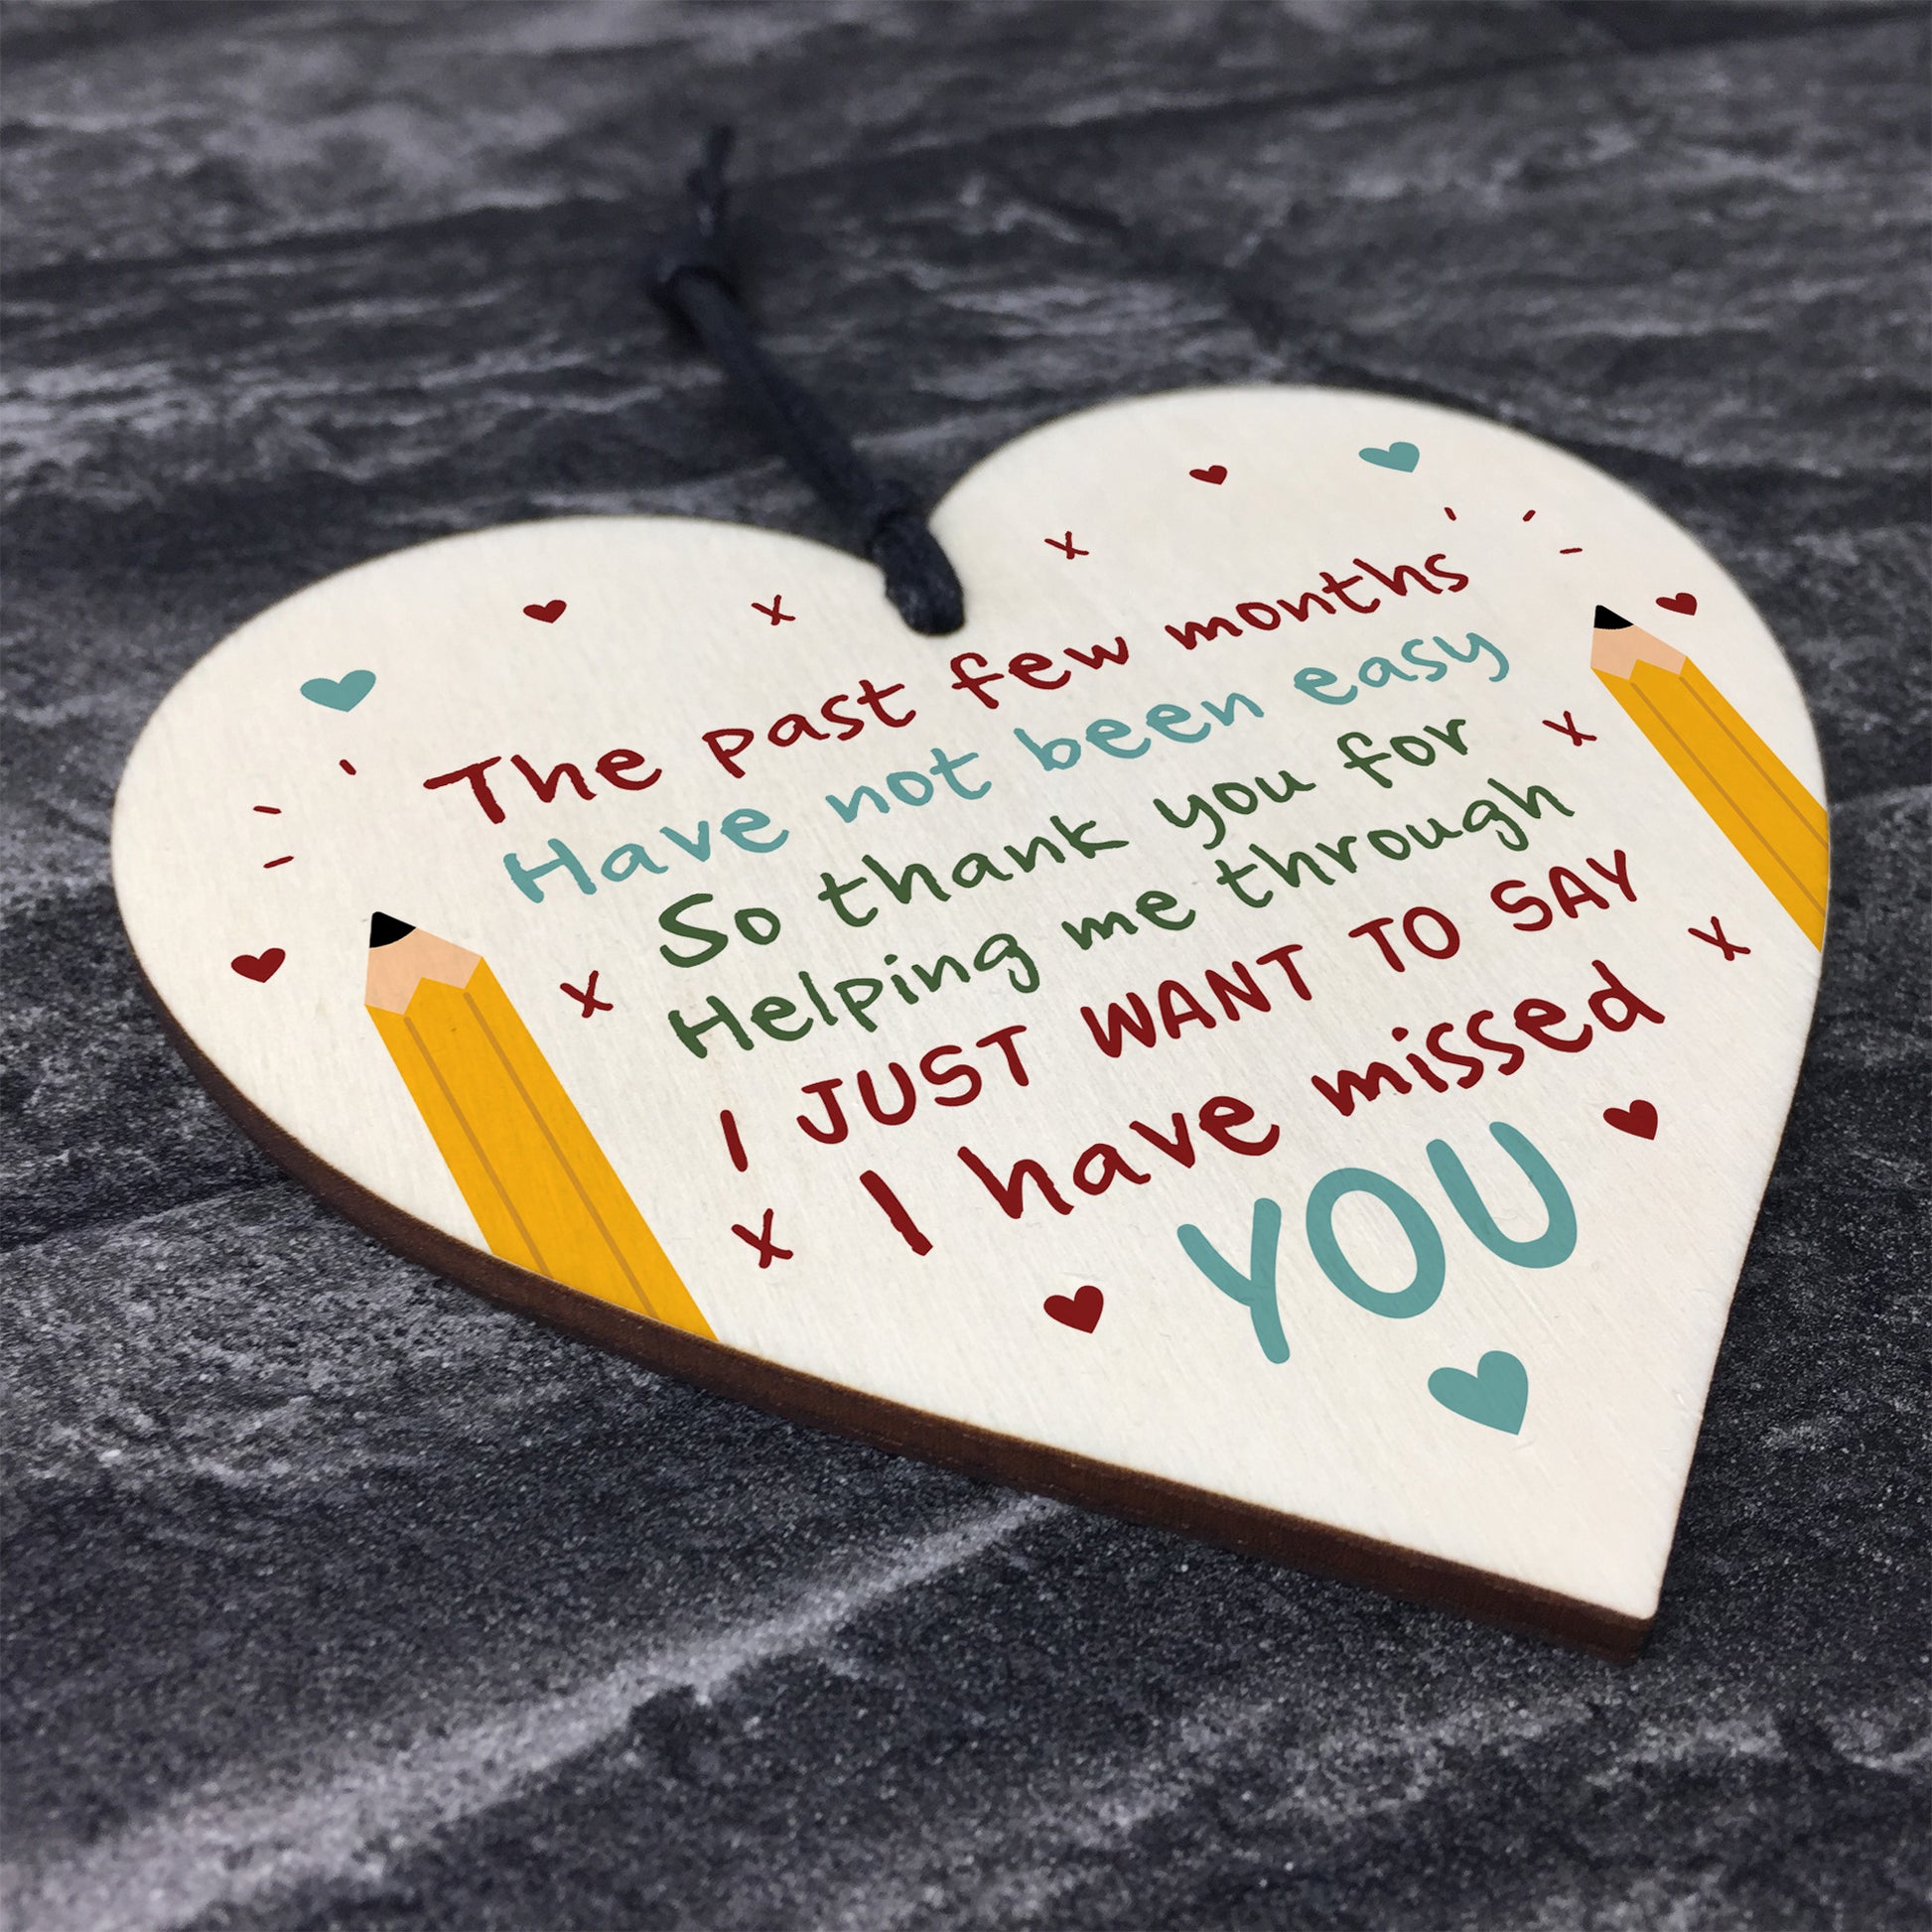 The past few months
Have not been easy
So thank you for
Helping me through
I JUST WANT TO SAY
I have missed
YOU